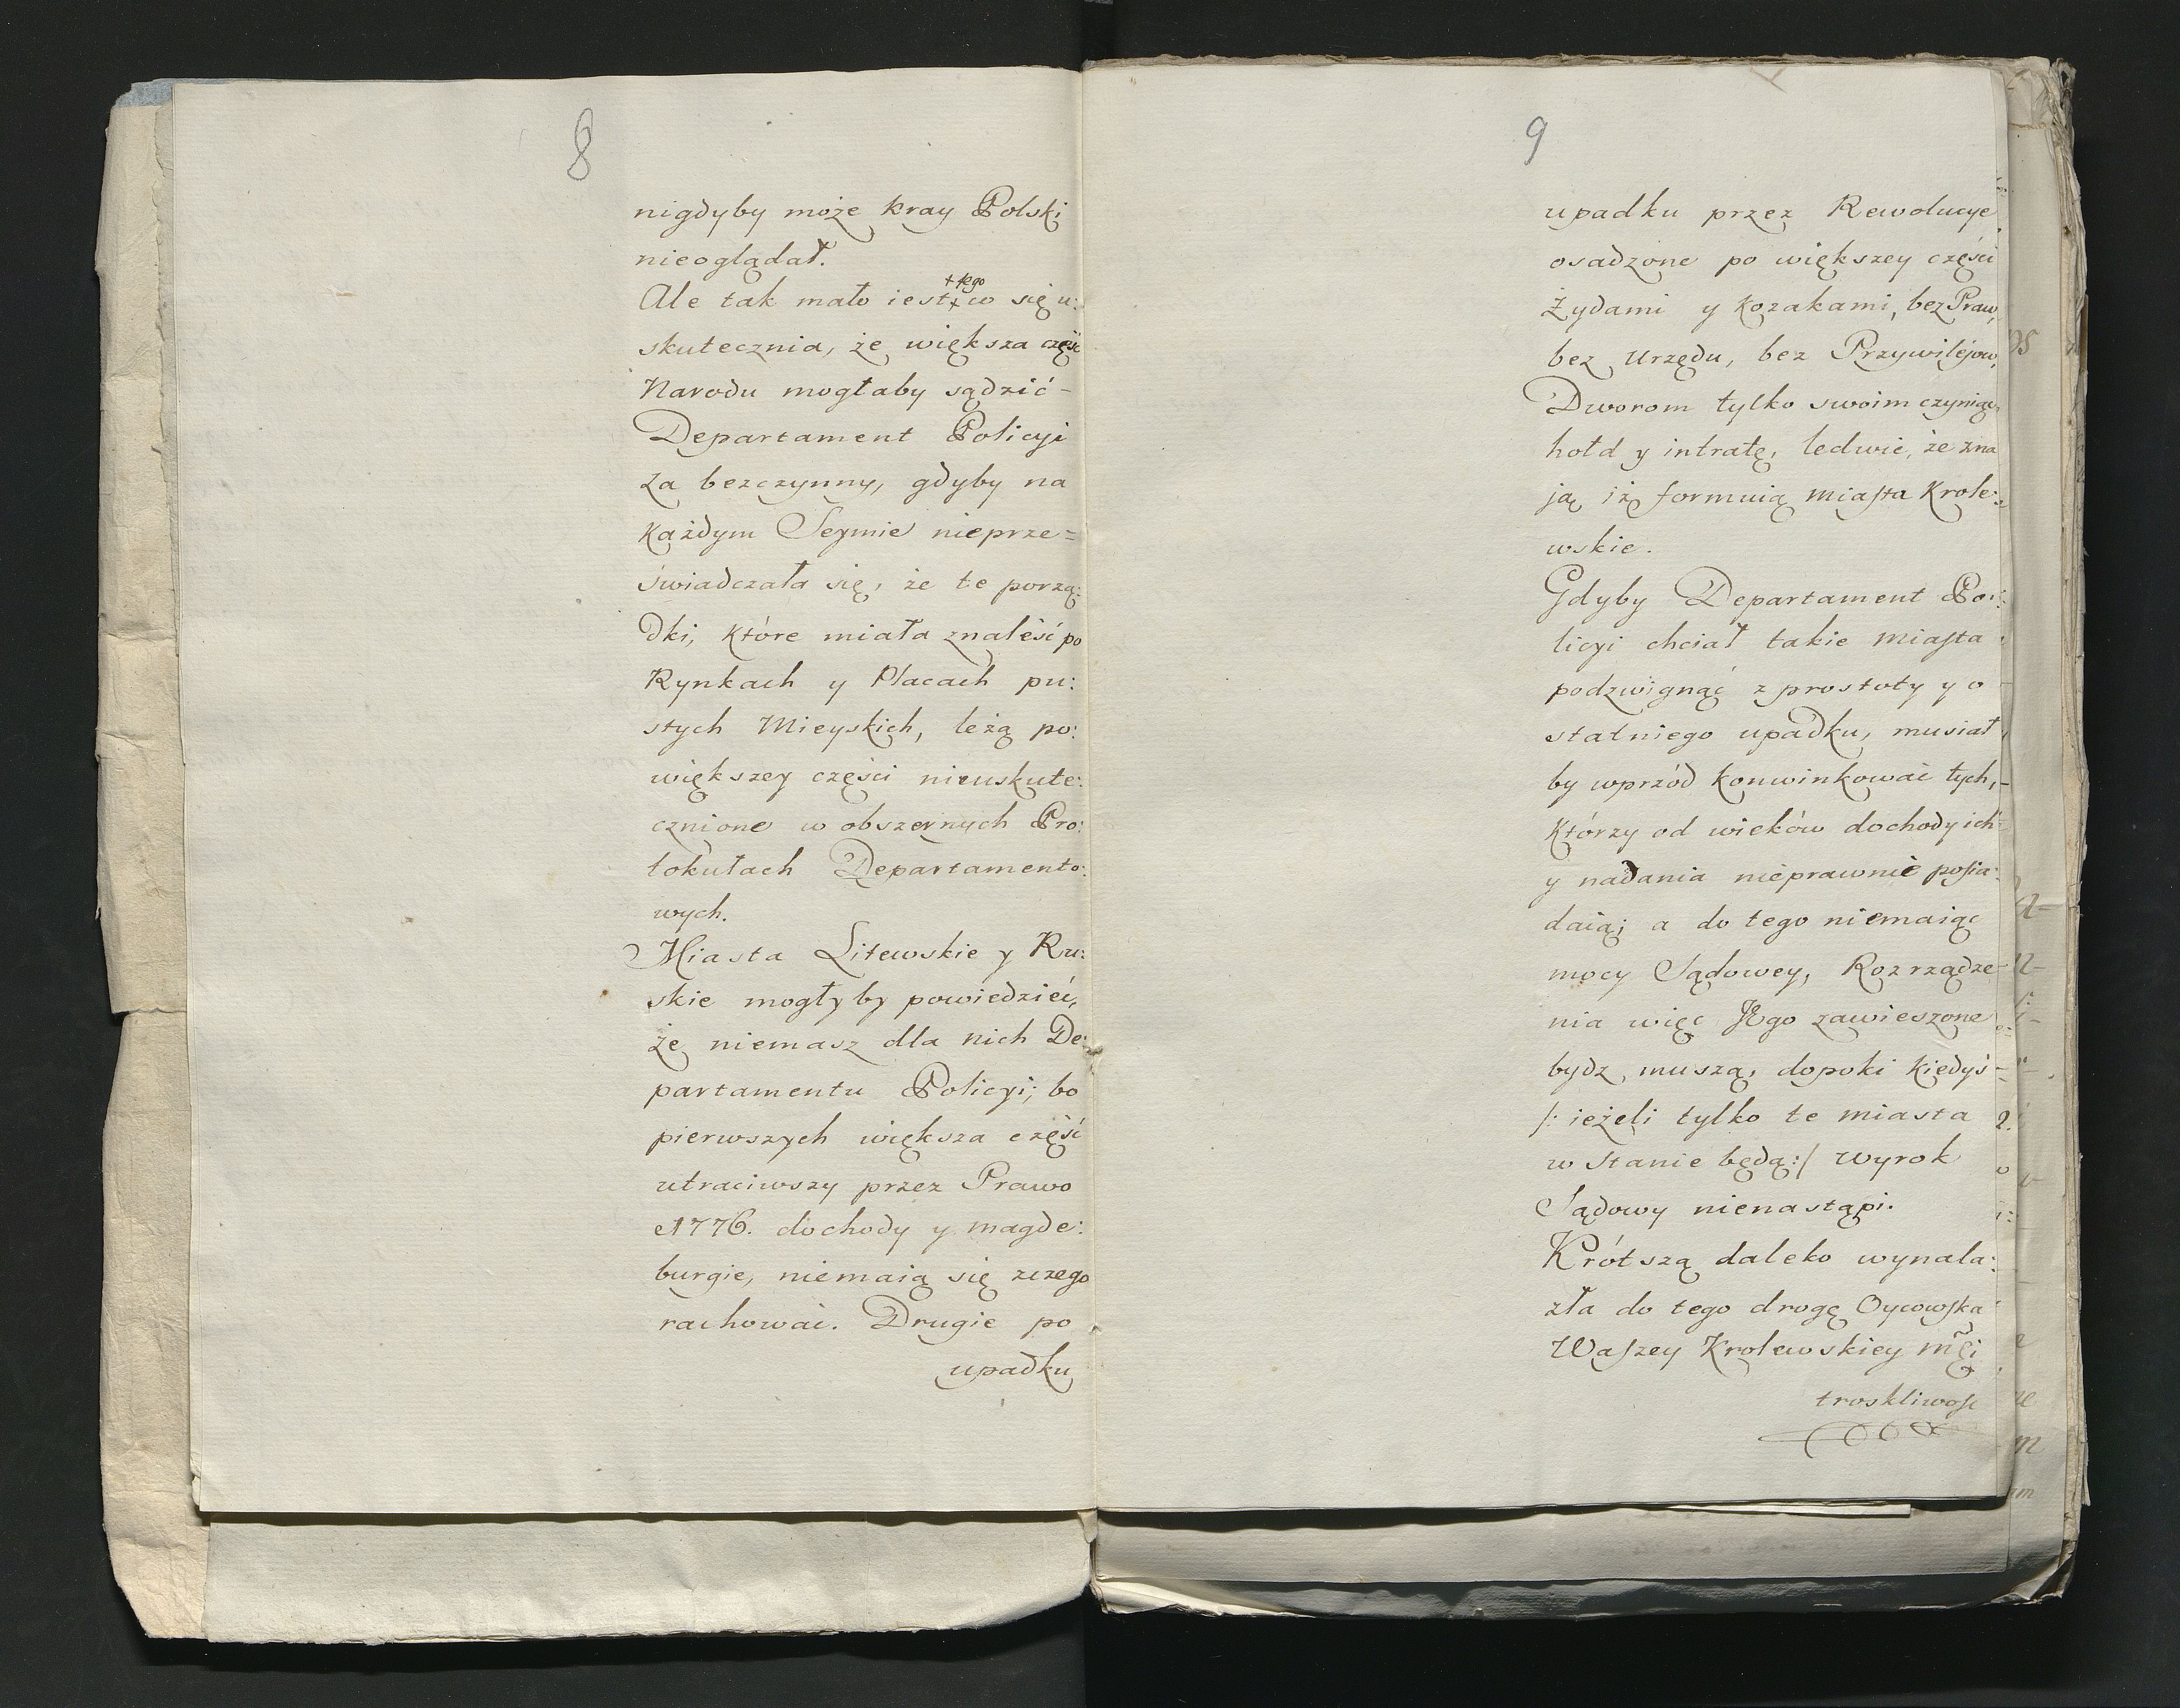 8
nigdyby może kray Polski
nieoglądał.
Ale tak mało iest + tego
+ co się u:
skutecznia, że większa część
Narodu mogłaby sądzić -
Departament Policyi
za bezczynny, gdyby na
każdym Seymie nieprze=
świadczała się, że te porzą:
dki, które miała znaleść po
Rynkach y Placach pu:
stych Mieyskich, leżą po:
większey części nieuskute:
cznione w obszernych Pro:
tokułach Departamento:
wych.
Miasta Litewskie y Ru:
skie mogłyby powiedzieć,
że niemasz dla nich De:
partamentu Policyi; bo
pierwszych większa część
utraciwszy przez Prawo
1776. dochody y magde:
burgie, niemaią się zczego
rachować. Drugie po
upadku
9
upadku przez Rewolucye
osadzone po większey części
Żydami y Kozakami, bez Praw,
bez Urzędu, bez Przywilejow,
Dworom tylko swoim czyniąc
hołd y intratę, ledwie, że zna
ją iż formuią miasta Krole:
wskie.
Gdyby Departament Po:
licyi chciał takie miasta
podzwignąć z prostoty y o
statniego upadku, musiał
by wprzód konwinkować tych,-
którzy od wieków dochody ich
y nadania nieprawnie posia:
daią; a do tego niemaiąc
mocy Sądowey, Rozrządze-
nia więc Jego zawieszone
bydz muszą, dopoki kiedyś -
/: ieżeli tylko te miasta
w Stanie będą:/ wyrok
Sądowy nienastąpi.
Krótszą daleko wynala:
zła do tego drogę Oycowska
Waszey Krolewskiey mći
troskliwość